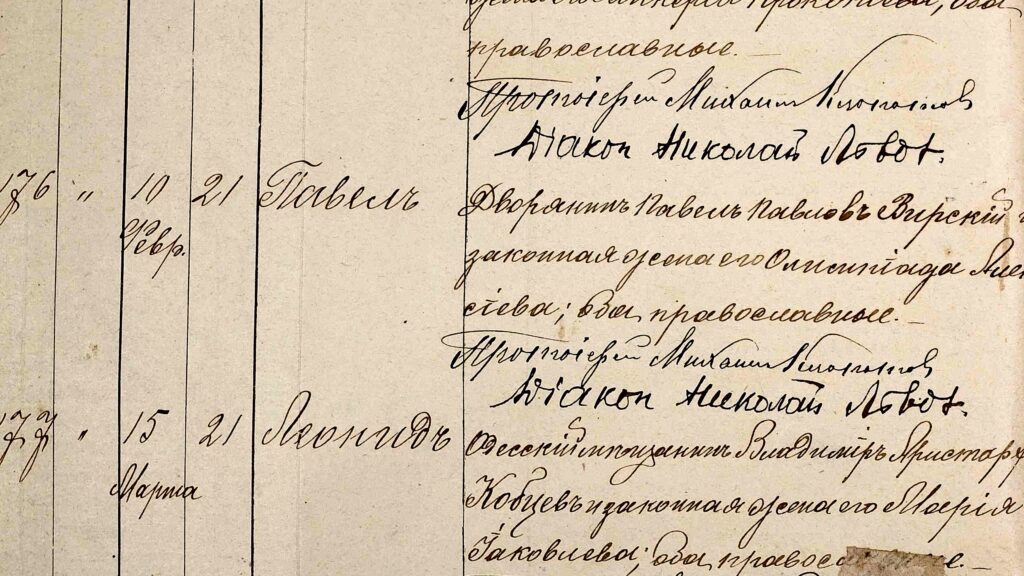 православные.
Протоіерей Михаилъ
Діакон Николай Львов.
176 " 10 21 Павелъ Дворянинъ Павелъ Павловъ Вирскій и
Февр. законная жена его Олимпіада Алек
сіева; оба православные.
Протоіерей Михаилъ
Діакон Николай Львов.
177 " 15 21 Леонидъ Одесскій мѣщанинъ Владиміръ Аристарх
Марта Кобцевъ и законная жена его Марія
Іаковлева; оба православные.